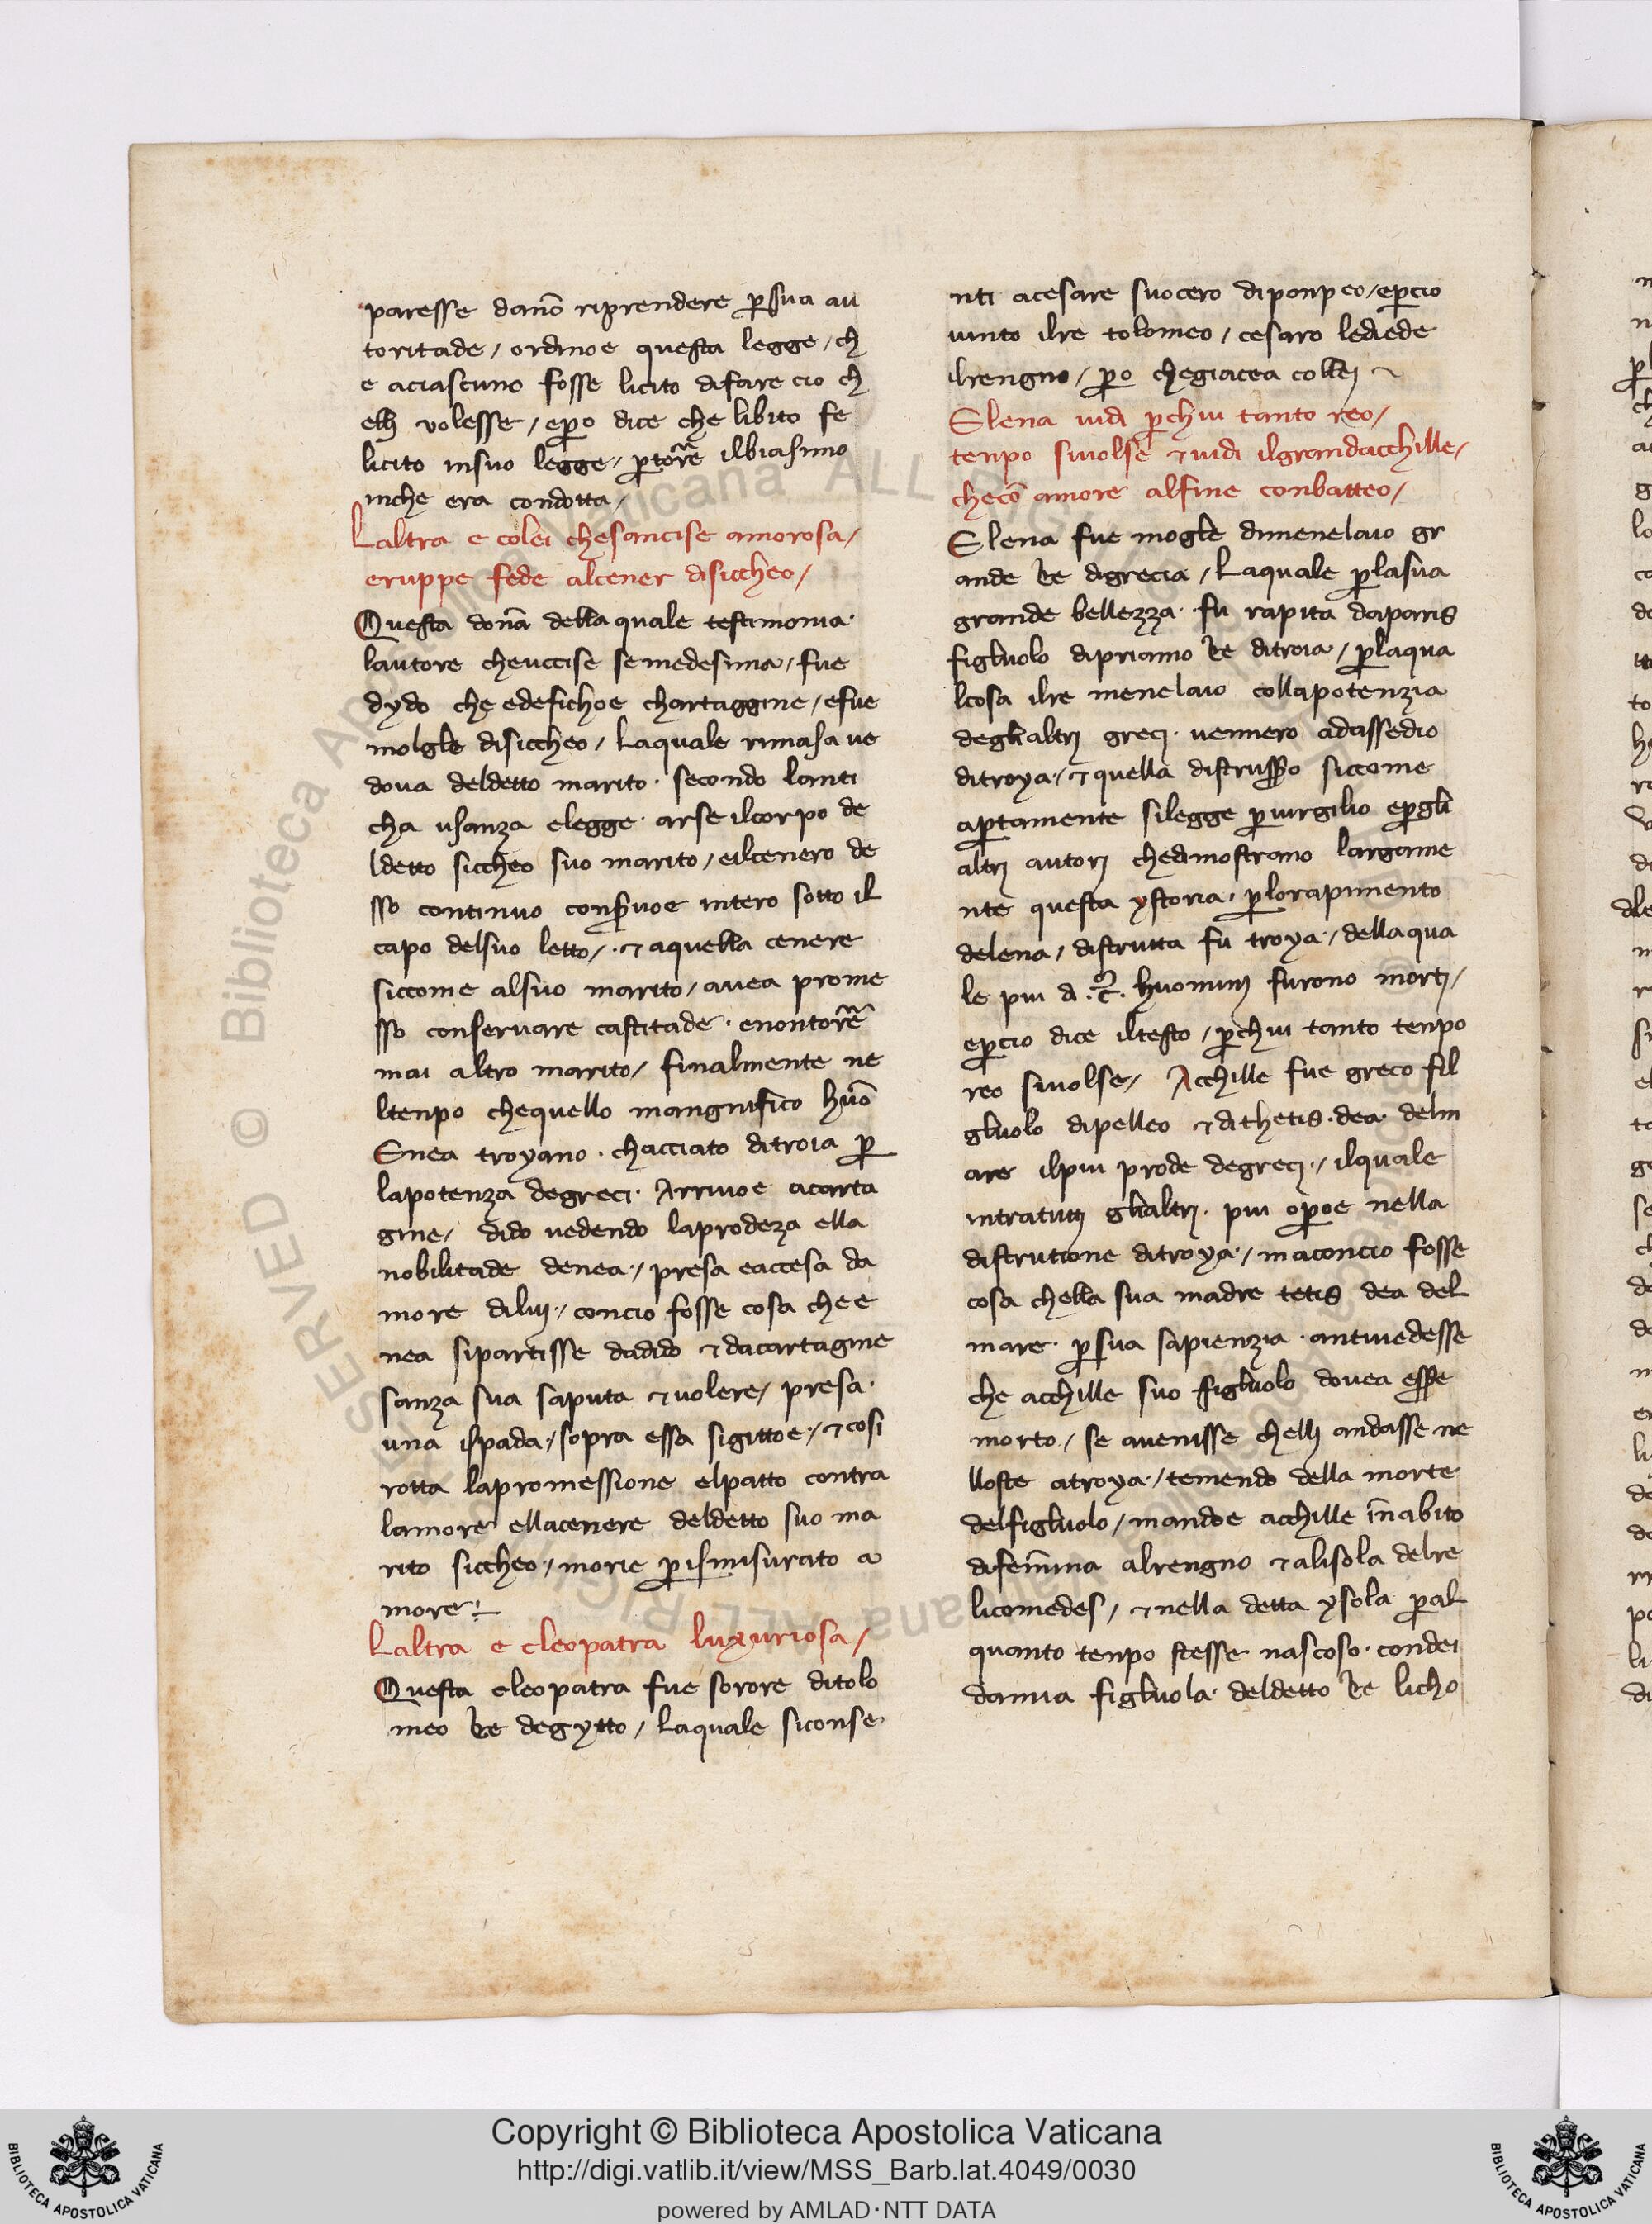 paresse danō riprendere ꝑsua au
toritade / ordinoe questa legge / cħ
e aciascuno fosse licito difare cio cħ
elli volesse / eꝑo dice che libito fe
licito insuo legge / ꝑtorre ilbiasimo
inche era condotta /
Laltra e colei chesancise amorosa /
eruppe fede alcener disiccheo /
Questa donā della quale testimonia ·
lautore cheuccise semedesima / fue
dydo che edefichoe chartaggine / efue
molgle disiccheo / Laquale rimasa ue
doua deldetto marito · secondo lanti
cha usanza elegge · arse ilcorpo de
ldetto siccheo suo marito / eilcenero de
sso continuo conseruoe intero sotto il
capo delsuo letto / · ⁊ aquella cenere
siccome alsuo marito / auea prome
sso conseruare castitade · enontorre
mai altro marito / finalmente ne
ltenpo chequello mangnifico huō
Enea troyano · chacciato ditroia ꝑ
lapotenza degreci · Arriuoe acarta
gine / dido uedendo laprodeza ella
nobilitade denea · / presa eaccesa da
more diluj · / concio fosse cosa che e
nea sipartisse dadido ⁊ dacartagine
sanza sua saputa ⁊ uolere / presa ·
una ispada · / sopra essa sigittoe · / ⁊ cosi
rotta lapromessione elpatto contra
lamore ellacenere deldetto suo ma
rito siccheo · / morie ꝑismisurato a
more :
Laltra e cleopatra luxuriosa /
Questa cleopatra fue sorore ditolo
meo Re degytto / Laquale siconse
nti acesare suocero diponpeo / eꝑcio
uinto ilre tolomeo / cesaro lediede
ilrengno / ꝑo chegiacea collej ~
Elena uidi ꝑchui tanto reo /
tenpo siuolse ⁊ uidi ilgrandacchille /
checō amore alfine conbatteo /
Elena fue mogle dimenelaio gr
ande Re digrecia / Laquale ꝑlasua
grande bellezza · fu rapita daparis
figluolo dipriamo Re ditroia / ꝑlaqua
lcosa ilre menelaio collapotenzia
deglialtrj grecj · uennero adassedio
ditroya · / ⁊ quella distrussero siccome
aꝑtamente silegge ꝑuirgilio eꝑgli
altrj autorj chedimostrano largame
nte questa ystoria · ꝑlorapimento
delena / distrutta fu troya · / della qua
le piu di · c̄ · huominj furono mortj /
eꝑcio dice iltesto / ꝑchui tanto tenpo
reo siuolse / Acchille fue greco fil
gluolo dipelleo ⁊ dithetis · dea · delm
are ilpiu prode degrecj · / ilquale
intratuttj glialtrj · piu oꝑoe nella
distrutione ditroya · / inaconcio fosse
cosa chella sua madre tetis dea del
mare · ꝑsua sapienzia · antiuedesse
che acchille suo figluolo douea esse
morto / se auenisse chellj andasse ne
lloste atroya · / temendo della morte
delfigluolo / mandoe acchille īn abito
difemīna alrengno ⁊ alisola delre
licomedes / ⁊ nella detta ysola ꝑal
quanto tenpo stesse nascoso · condei
damia figluola · deldetto Re licho
Copyright © Biblioteca Apostolica Vaticana
http://digi.vatlib.it/view/MSS_Barb.lat.4049/0030
powered by AMLAD·NTT DATA